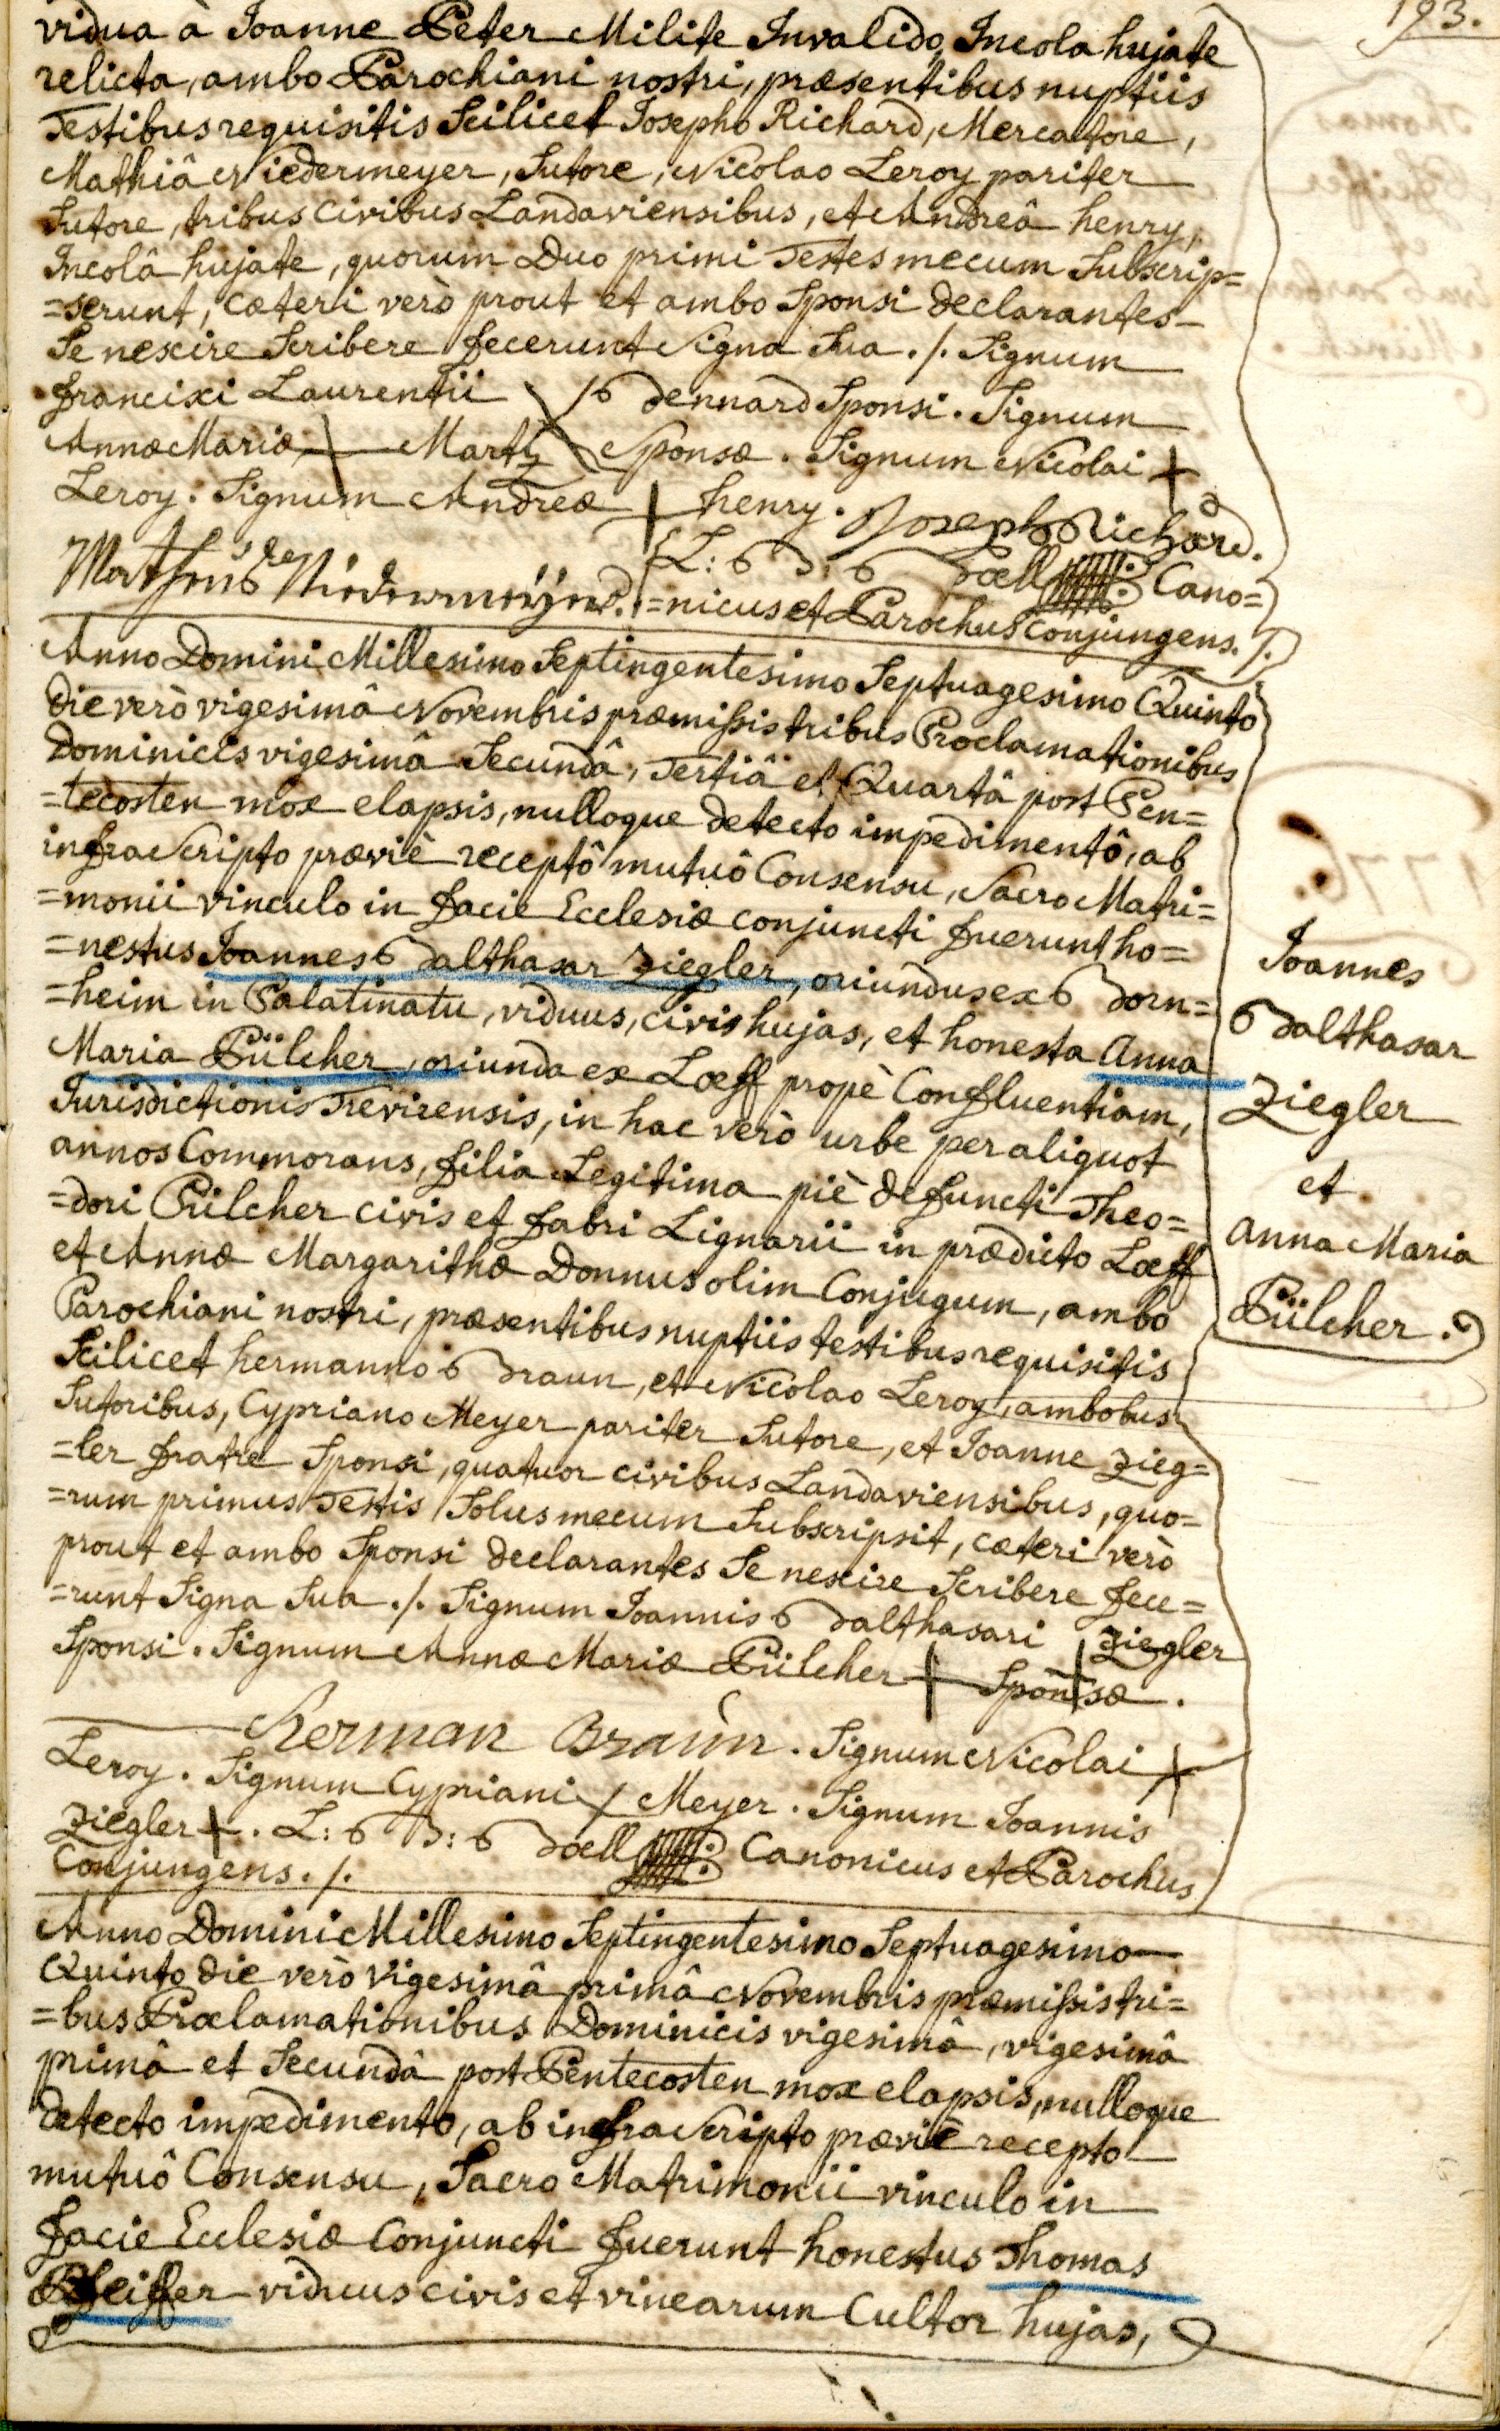 193.
vidua à Joanne Peter Milite Invalido, Incola hujate
relicta, ambo Parochiani nostri, præsentibus nuptiis
Testibus requisitis Scilicet Josepho Richard, Mercatore,
Mathiâ Niedermeyer, Sutore, Nicolao Leroy pariter
Sutore, tribus Civibus Landaviensibus, et Andreâ henry,
Incolâ hujate, quorum Duo primi Testes mecum Subscrip=
=serunt, Cæteri verò prout et ambo Sponsi declarantes
Se nescire Scribere fecerunt Signa Sua ./. Signum
francisci Laurentii Bennard Sponsi. Signum
Annæ Mariæ + Marty Sponsæ. Signum Nicolai +
Leroy. Signum Andreæ + henry. Joseph Richard.
L: B: Boell Cano=
=nicus et Parochus Conjungens. ./.
Anno Domini Millesimo Septingentesimo Septuagesimo Quinto
die verò vigesimâ Novembris præmissis tribus Proclamationibus
Dominicis vigesimâ Secundâ, Tertiâ et Quartâ post Pen=
=tecosten mox elapsis, nulloque detecto impedimentô, ab
infra Scripto præviè receptô mutuô Consensu, Sacro Matri=
=monii vinculo in facie Ecclesiæ conjuncti fuerunt ho=
=nestus Joannes Balthasar Ziegler, oriundus ex Born=
=heim in Palatinatu, viduus, civis hujas, et honesta Anna
Maria Pülcher, oriunda ex Loeff propè Confluentiam,
Jurisdictionis Trevirensis, in hac verò urbe per aliquot
annos Commorans, filia Legitima piè defuncti Theo=
=dori Pülcher civis et fabri Lignarii in prædicto Loeff
et Annæ Margarithæ Donnus olim Conjugum, ambo
Parochiani nostri, præsentibus nuptiis testibus requisitis
Scilicet hermanno Braun, et Nicolao Leroy, ambobus
Sutoribus, Cypriano Meyer pariter Sutore, et Joanne Zieg=
=ler fratre Sponsi, quatuor civibus Landaviensibus, quo=
=rum primus Testis Solus mecum Subscripsit, cæteri verò
prout et ambo Sponsi declarantes Se nescire Scribere fece=
=runt Signa Sua ./. Signum Joannis Balthasari + Ziegler
Sponsi. Signum Annæ Mariæ Pülcher + Sponsæ.
Herman Braun. Signum Nicolai +
Leroy. Signum Cypriani + Meyer. Signum Joannis
Ziegler +. L: B: Boell Canonicus et Parochus
Conjungens. ./.
Joannes
Balthasar
Ziegler
et
Anna Maria
Pülcher.
Anno Domini Millesimo Septingentesimo Septuagesimo
Quinto die verò Vigesimâ primâ Novembris præmissis tri=
=bus Proclamationibus Dominicis vigesimâ, vigesimâ
primâ et Secundâ post Pentecosten mox elapsis, nulloque
detecto impedimento, ab infra Scripto præviè recepto
mutuô Consensu, Sacro Matrimonii vinculo in
facie Ecclesiæ Conjuncti fuerunt honestus Thomas
Pfeiffer viduus civis et vinearum Cultor hujas,